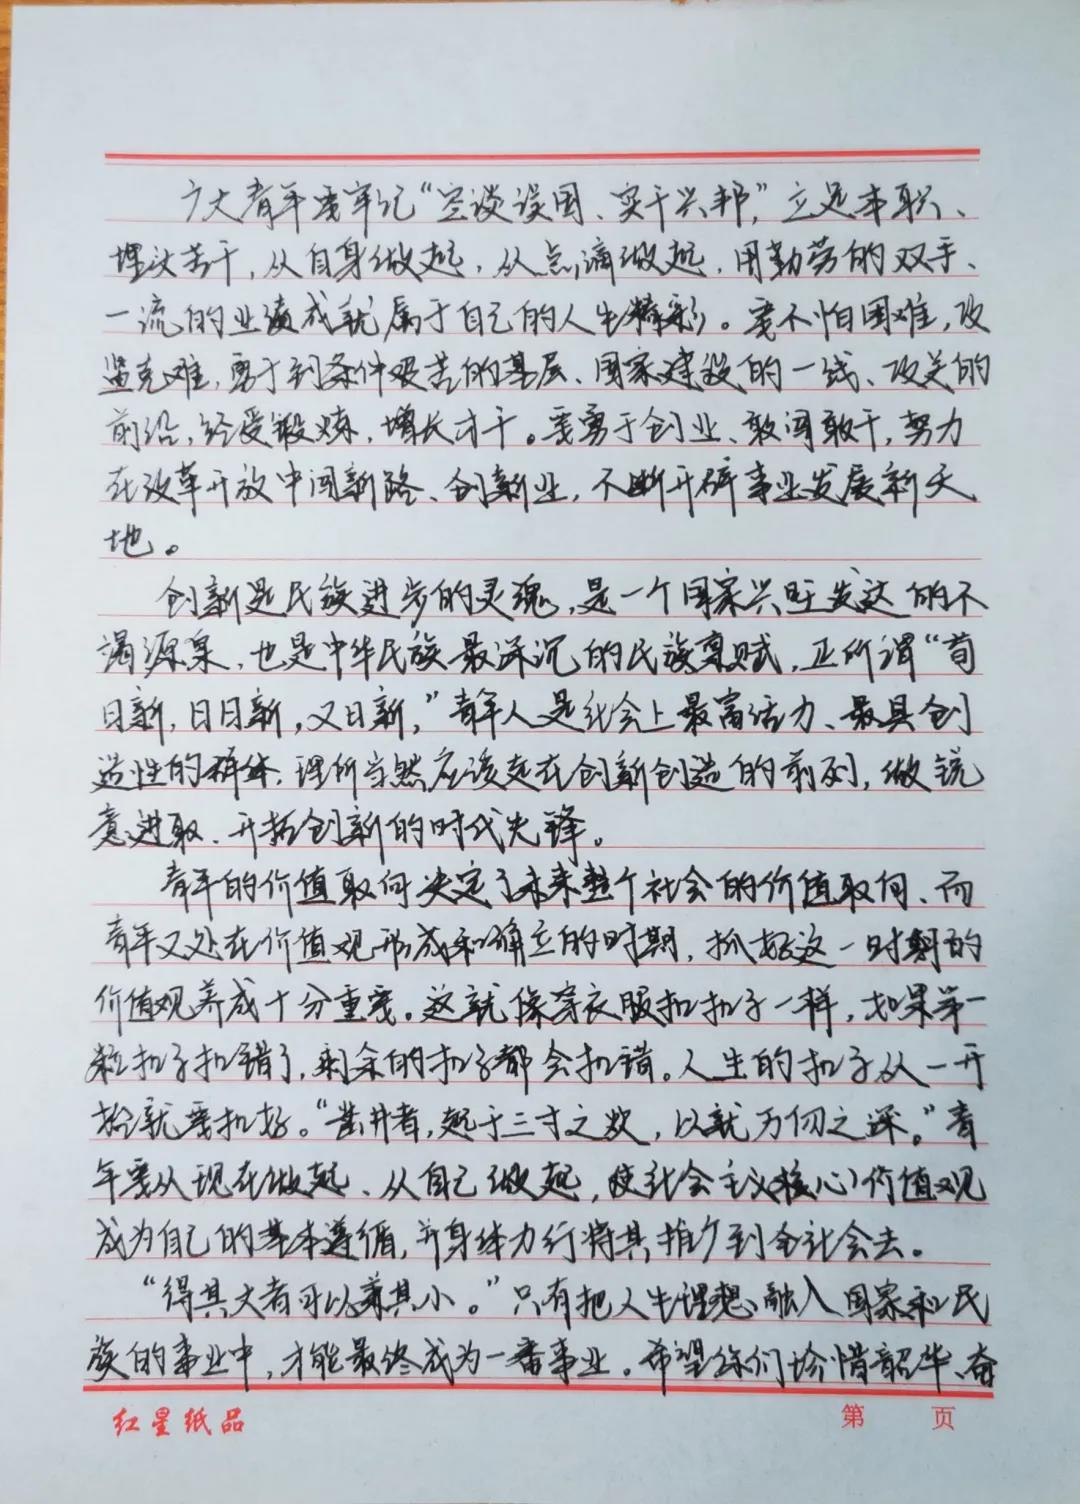 广大青年要牢记“空谈误国、实干兴邦”，立足本职、
埋头苦干，从自身做起，从点滴做起，用勤劳的双手、
一流的业绩成就属于自己的人生精彩。要不怕困难，攻
坚克难，勇于到条件艰苦的基层、国家建设的一线、攻关的
前沿，经受锻炼，增长才干。要勇于创业、敢闯敢干，努力
在改革开放中闯新路、创新业，不断开辟事业发展新天
地。
创新是民族进步的灵魂，是一个国家兴旺发达的不
竭源泉，也是中华民族最深沉的民族禀赋，正所谓“苟
日新，日日新，又日新。”青年人是社会上最富活力、最具创
造性的群体，理所当然应该走在创新创造的前列，做锐
意进取、开拓创新的时代先锋。
青年的价值取向决定了未来整个社会的价值取向、而
青年又处在价值观形成和确立的时期，抓好这一时期的
价值观养成十分重要。这就像穿衣服扣扣子一样，如果第一
粒扣子扣错了，剩余的扣子都会扣错。人生的扣子从一开
始就要扣好。“凿井者，起于三寸之坎，以就万仞之深。”青
年要从现在做起、从自己做起，使社会主义核心价值观
成为自己的基本遵循，并身体力行将其推广到全社会去。
“得其大者可以兼其小。”只有把人生理想融入国家和民
族的事业中，才能最终成为一番事业。希望你们珍惜韶华、奋
红星纸品
第 页